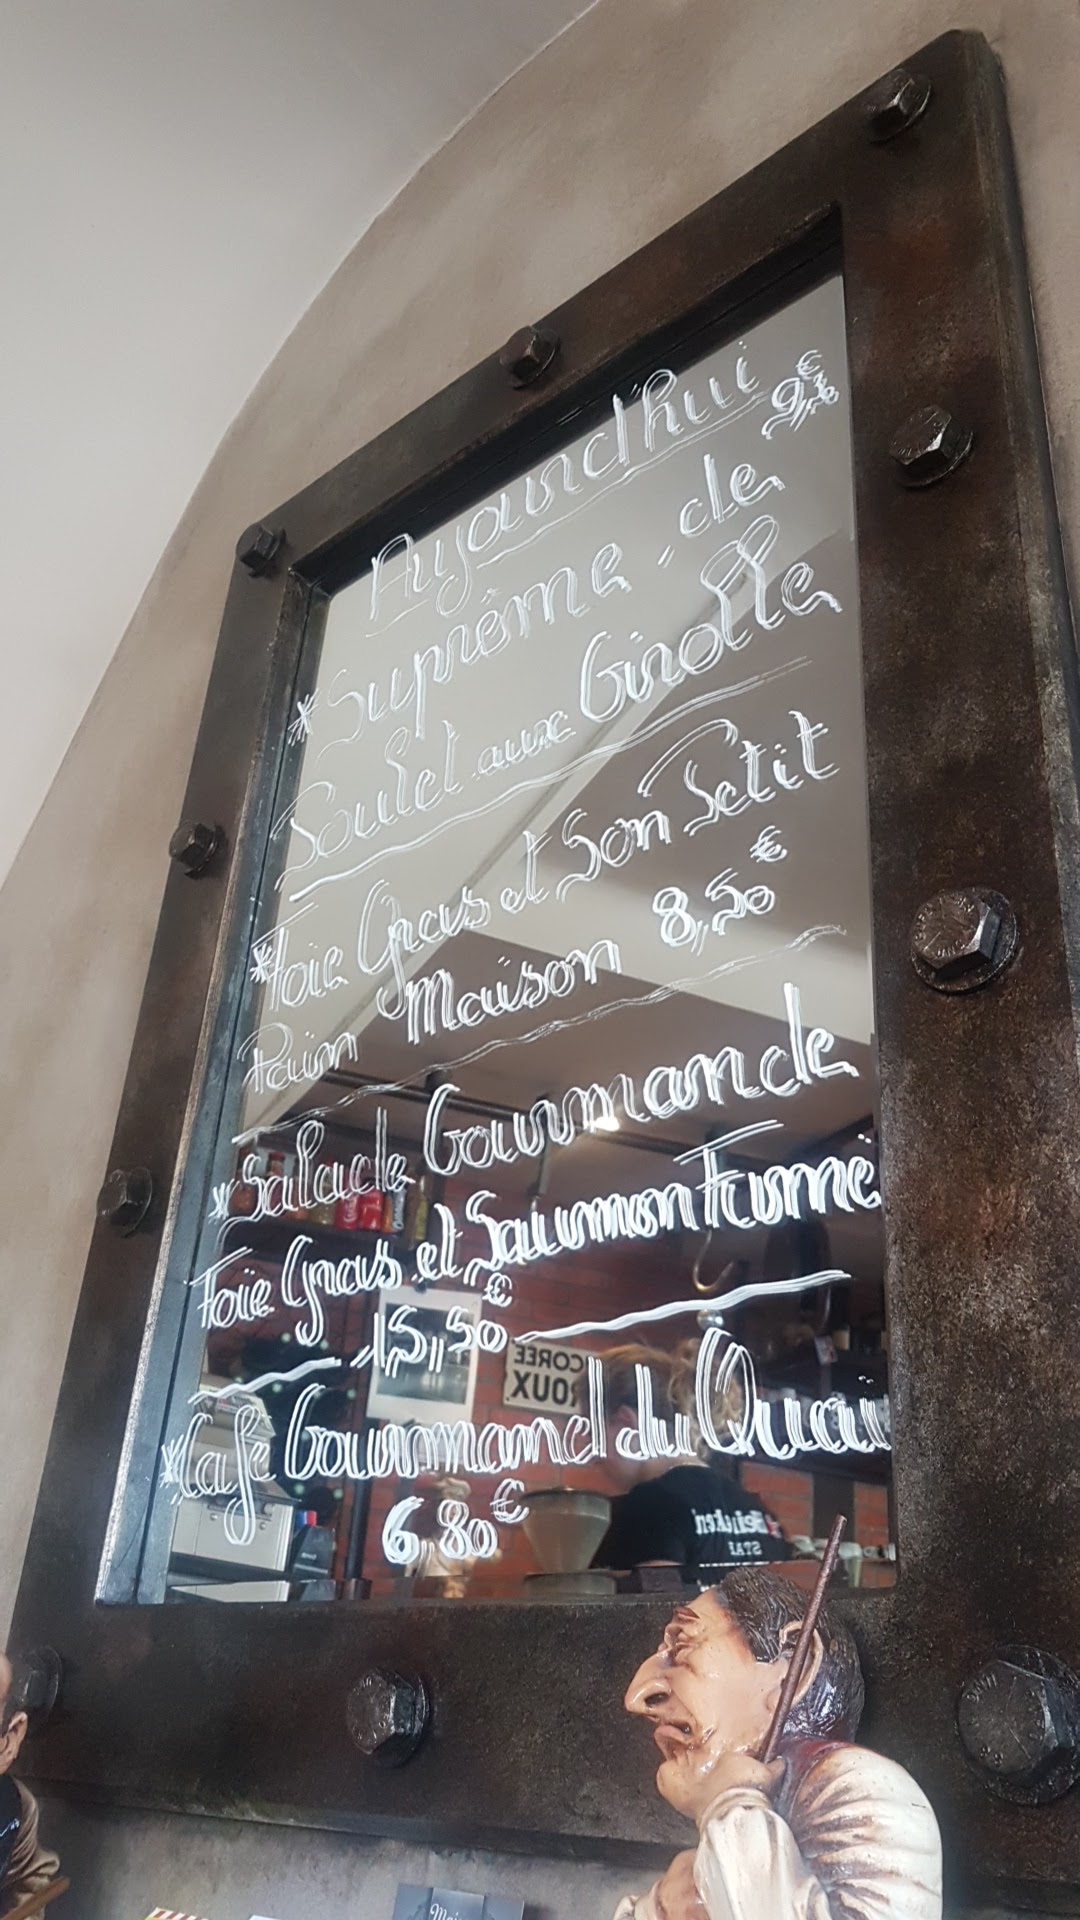 Aujourd'hui
*Suprême de 9,
Poulet aux Girolle
*Foie Gras et Son Petit
Pain Maison 8,50€
*Salade Gourmande
Foie Gras et Saumon Fumé
15,50€
*Café Gourmand du Quai
6,80€
COREE
ROUX
Heineken
STAF